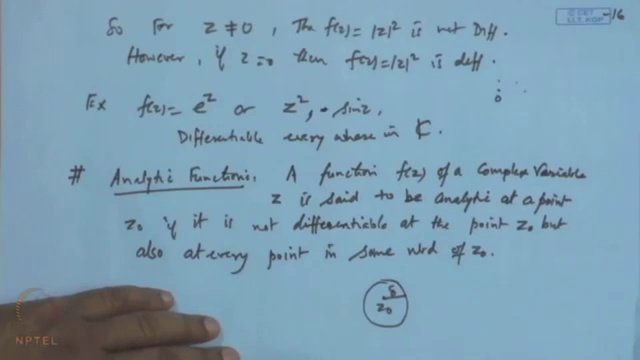 So For z ≠ 0, The f(z) = |z|² is not Diff.
However, if z=0 Then f(z)=|z|² is diff.
Ex f(z) = e^z or z², sin z,
Differentiable every where in ₵.
# Analytic Functions: A function f(z) of a Complex Variable
z is said to be analytic at a point
z₀ if it is not differentiable at the point z₀ but
also at every point in some nbd of z₀.
δ
z₀
0
NPTEL
-16